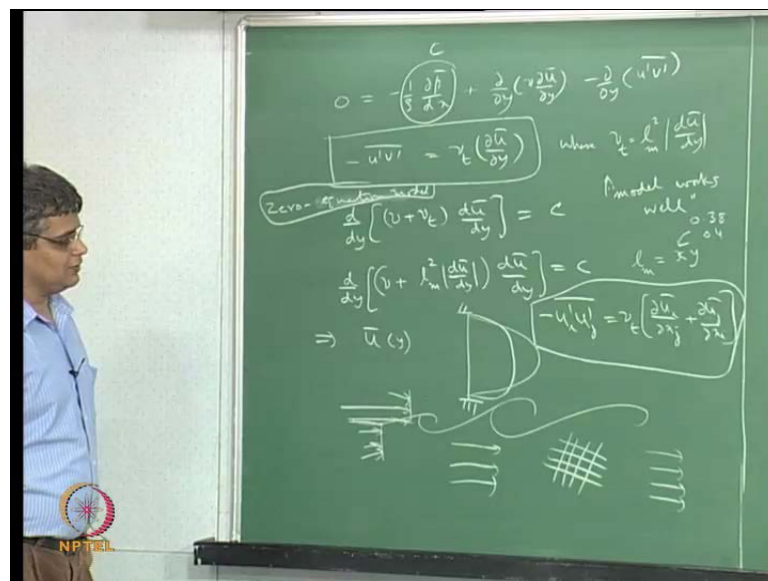 C
0 = -1/ρ ∂p̄/∂x + ∂/∂y(ν ∂ū/∂y) - ∂/∂y(u'v')
-u'v' = ν_t(∂ū/∂y) where ν_t = l_m^2 |dū/dy|
Zero-equation model
"model works well"
d/dy[(ν + ν_t) dū/dy] = C
0.38
0.4
l_m = κy
d/dy[(ν + l_m^2 |dū/dy|) dū/dy] = C
-u'_i u'_j = ν_t[∂ū_i/∂x_j + ∂ū_j/∂x_i]
⇒ ū(y)
NPTEL